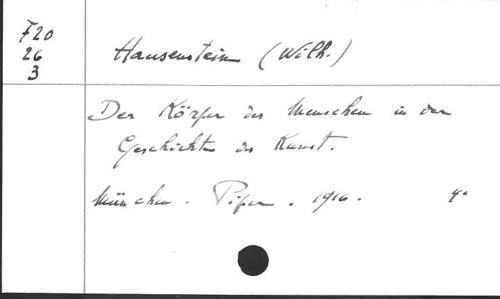 F20
26
3
Hausenstein (Wilh.)
Der Körper des Menschen in der
Geschichte der Kunst.
München. Piper. 1916. 4°